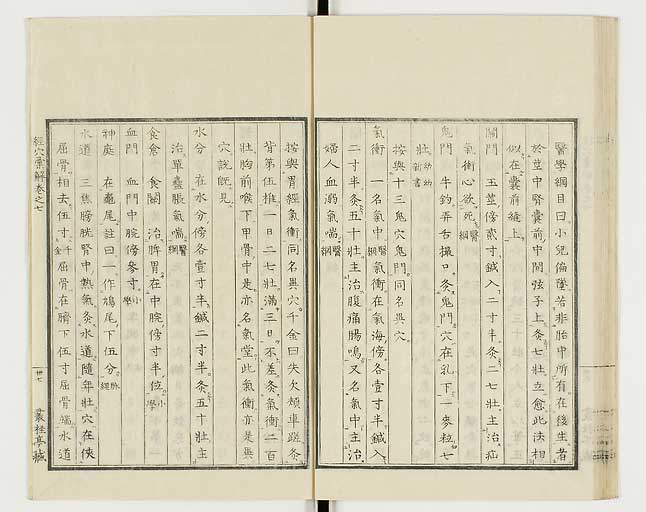 醫學綱目曰小兒偏墜若非胎中所有在後生者
於莖中腎囊前中間弦子上灸七壯立愈此法相
似在囊前縫上
關門 玉莖傍貳寸鍼入二寸半灸二七壯主治疝
氣衝心欲死 醫綱
鬼門 牛釣弄舌撮口灸鬼門穴在乳下一麥粒七
壯 幼幼新書
按與十三鬼穴鬼門同名異穴
氣衝 一名氣中 醫綱 氣衝在氣海傍各壹寸半鍼入
二寸半灸五十壯主治腹痛腸鳴又名氣中主治
婦人血溺氣喘 醫綱
按與胃經氣衝同名異穴千金曰失欠頰車蹉灸
背第五椎一日二七壯滿三日不差灸氣衝二百
壯胸前喉下甲骨中是亦名氣堂此氣衝亦是與
穴說旣見
水分 在水分傍各壹寸半鍼二寸半灸五十壯主
治單蠱脹氣喘 醫綱
食倉 食關 治脾胃在中脘傍寸半位 小學
血門 血門中脘傍參寸 小學
神庭 在龜尾註曰一作鳩尾下伍分 脉經
水道 三焦膀胱腎中熱氣灸水道隨年壯穴在俠
屈骨相去伍寸 千金 屈骨在臍下伍寸屈骨端水道
經穴彙解卷之七
卅七
叢桂亭藏